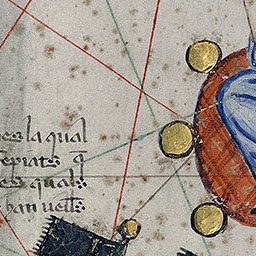 es la qual
seriats q̄
es quals
han uells